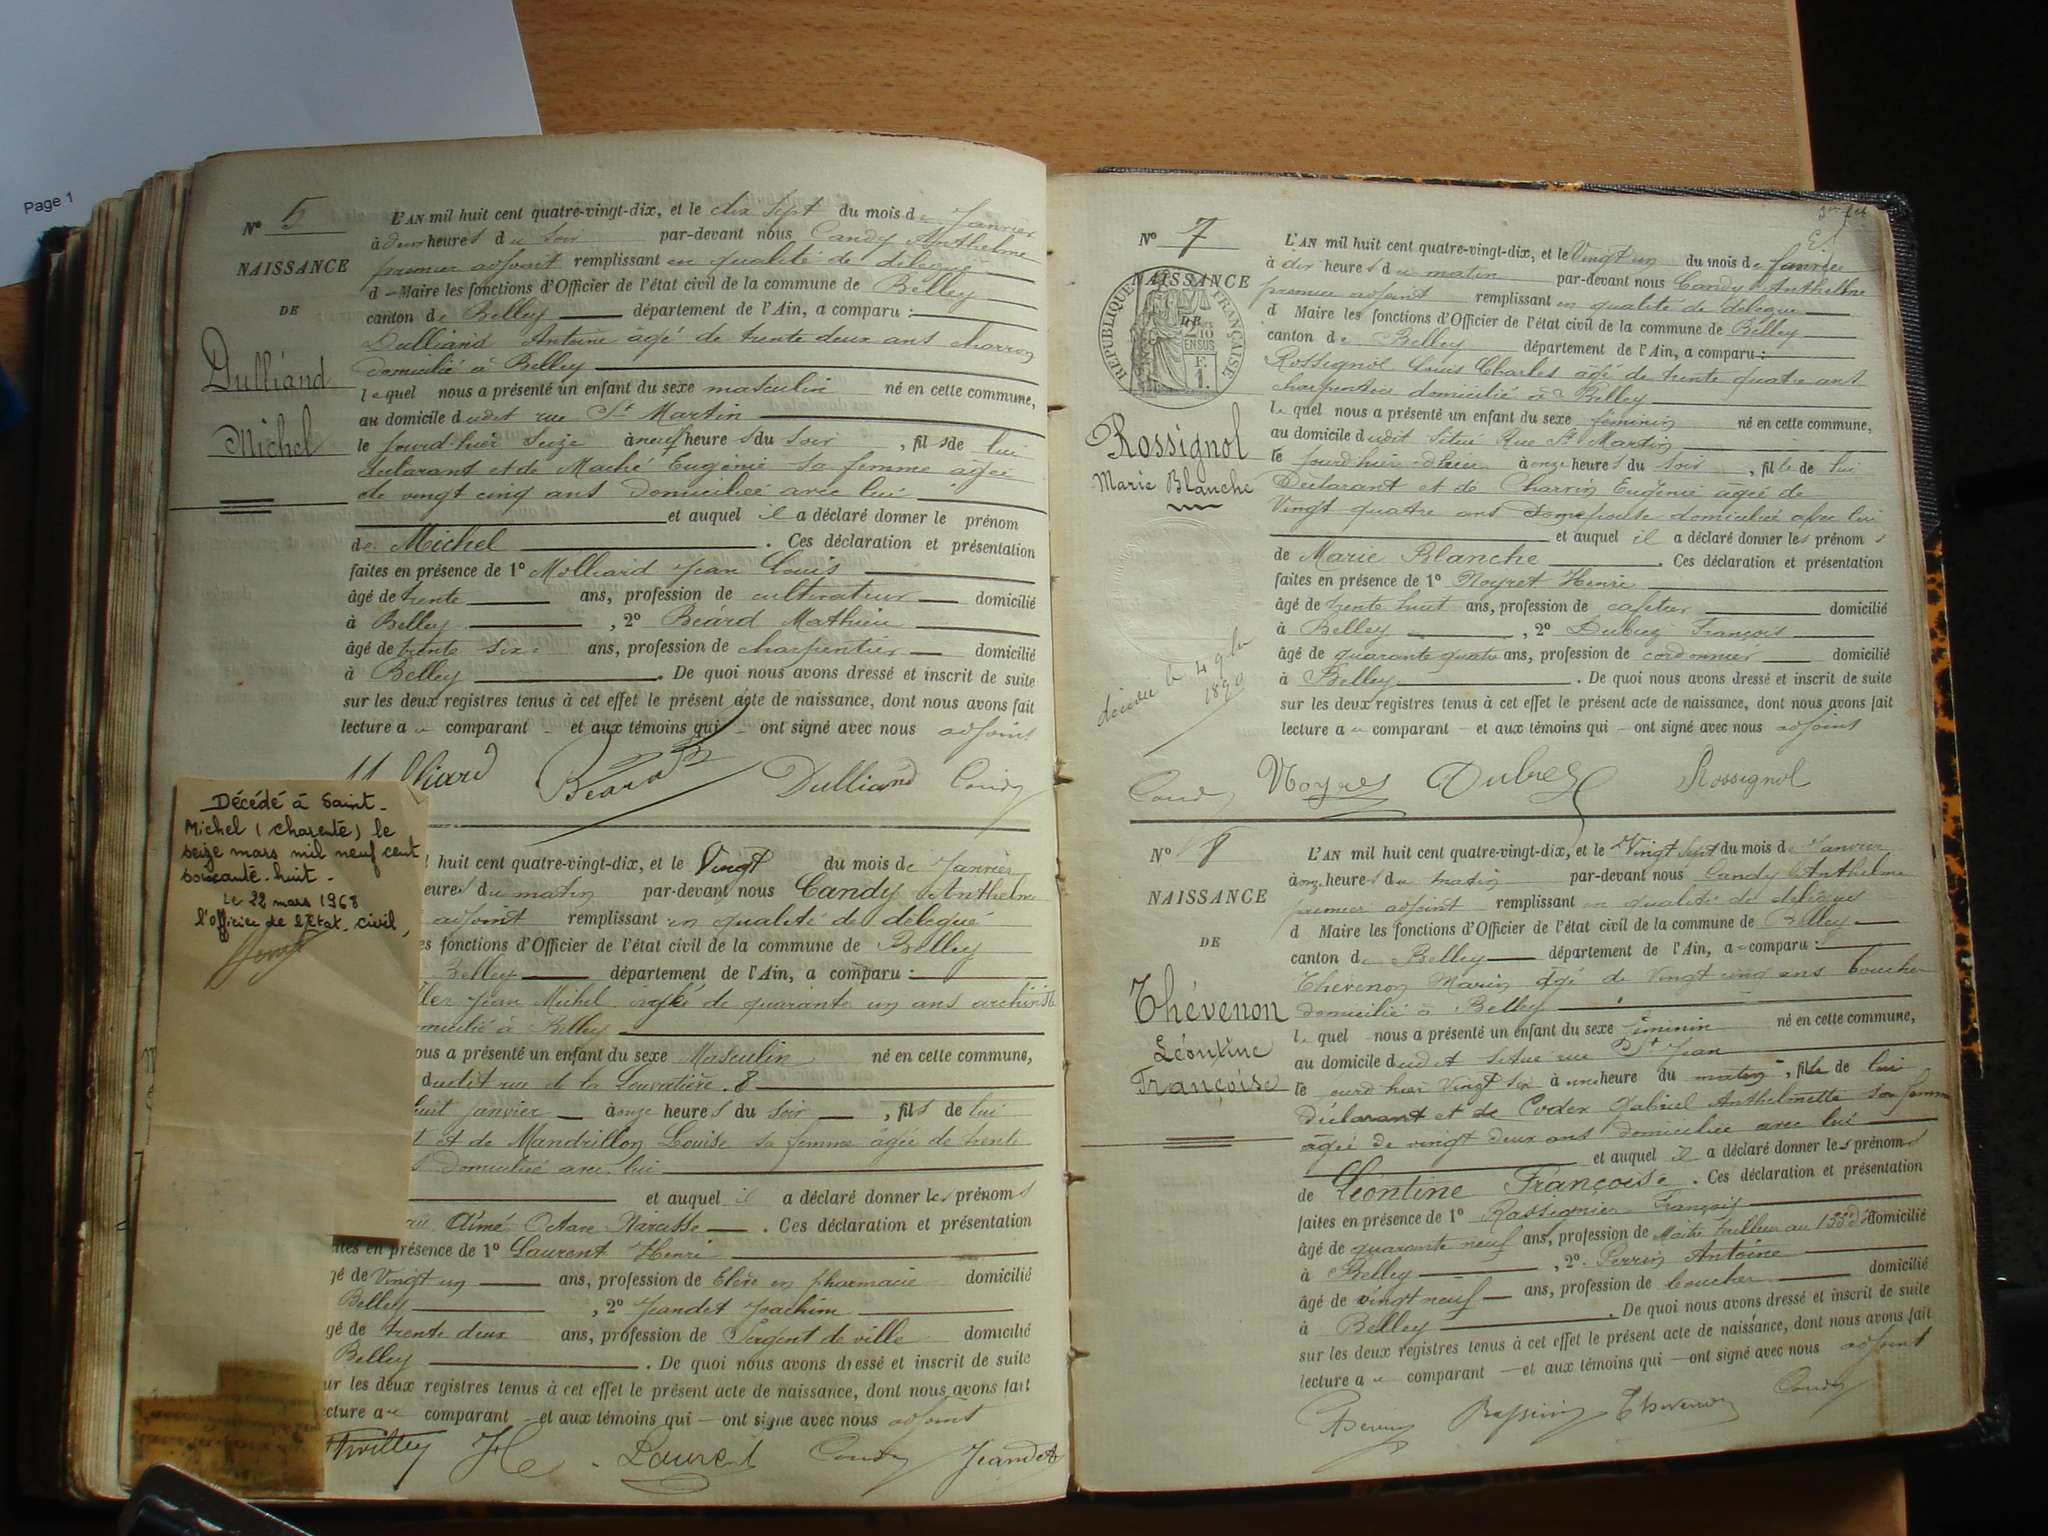 Page 1
N° 5
NAISSANCE
DE
Dulliand
Michel
L'AN mil huit cent quatre-vingt-dix, et le dix sept du mois de Janvier
à deux heures du soir par-devant nous Candy Anthelme
premier adjoint remplissant en qualité de délégué
d Maire les fonctions d'Officier de l'état civil de la commune de Belley
canton de Belley département de l'Ain, a comparu :
Dulliand Antoine âgé de trente deux ans charron
domicilié à Belley
lequel nous a présenté un enfant du sexe masculin né en cette commune,
au domicile dudit rue St Martin
le jourd'hier seize à neuf heures du soir, fils de lui
déclarant et de Maché Eugénie sa femme âgée
de vingt cinq ans domiciliée avec lui
et auquel il a déclaré donner le prénom
de Michel. Ces déclaration et présentation
faites en présence de 1° Molliard Jean Louis
âgé de trente ans, profession de cultivateur domicilié
à Belley, 2° Béard Mathieu
âgé de trente six ans, profession de charpentier domicilié
à Belley. De quoi nous avons dressé et inscrit de suite
sur les deux registres tenus à cet effet le présent acte de naissance, dont nous avons fait
lecture au comparant et aux témoins qui ont signé avec nous adjoint
Béard Dulliand Candy
Décédé à Saint-
Michel (Charente) le
seize mars mil neuf cent
soixante-huit-
Le 22 mars 1968
l'officier de l'Etat-civil,
huit cent quatre-vingt-dix, et le Vingt du mois de Janvier
heures du matin par-devant nous Candy Anthelme
adjoint remplissant en qualité de délégué
es fonctions d'Officier de l'état civil de la commune de Belley
Belley département de l'Ain, a comparu :
Jean Michel âgé de quarante un ans
domicilié à Belley
ous a présenté un enfant du sexe Masculin né en cette commune,
dudit rue de la Louvatière 8
huit janvier à onze heures du soir, fils de lui
t et de Mandrillon Louise sa femme âgée de trente
domiciliée avec lui
et auquel il a déclaré donner les prénoms
Aimé Octave Narcisse. Ces déclaration et présentation
ites en présence de 1° Laurent Henri
gé de Vingt un ans, profession de Elève en pharmacie domicilié
Belley, 2° Jeandet Joachim
gé de trente deux ans, profession de Sergent de ville domicilié
Belley. De quoi nous avons dressé et inscrit de suite
ur les deux registres tenus à cet effet le présent acte de naissance, dont nous avons fait
ecture au comparant et aux témoins qui ont signé avec nous adjoint
Laurent Candy Jeandet
N° 7
NAISSANCE
DE
RÉPUBLIQUE FRANÇAISE
Rossignol
Marie Blanche
décédée le 4 9bre
1890
L'AN mil huit cent quatre-vingt-dix, et le Vingt un du mois de Janvier
à dix heures du matin par-devant nous Candy Anthelme
premier adjoint remplissant en qualité de délégué
d Maire les fonctions d'Officier de l'état civil de la commune de Belley
canton de Belley département de l'Ain, a comparu :
Rossignol Louis Charles âgé de trente quatre ans
charpentier domicilié à Belley
lequel nous a présenté un enfant du sexe féminin né en cette commune,
au domicile dudit situé Rue St Martin
le jourd'hier à onze heures du soir, fille de lui
Déclarant et de Charvin Eugénie âgée de
Vingt quatre ans son épouse domiciliée avec lui
et auquel il a déclaré donner les prénoms
de Marie Blanche. Ces déclaration et présentation
faites en présence de 1° Noyret Henri
âgé de trente huit ans, profession de cafetier domicilié
à Belley, 2° Dubiez François
âgé de quarante quatre ans, profession de cordonnier domicilié
à Belley. De quoi nous avons dressé et inscrit de suite
sur les deux registres tenus à cet effet le présent acte de naissance, dont nous avons fait
lecture au comparant et aux témoins qui ont signé avec nous adjoint
Candy Rossignol
N° 8
NAISSANCE
DE
Thévenon
Léontine
Françoise
L'AN mil huit cent quatre-vingt-dix, et le Vingt sept du mois de Janvier
à onze heures du matin par-devant nous Candy Anthelme
premier adjoint remplissant en qualité de délégué
d Maire les fonctions d'Officier de l'état civil de la commune de Belley
canton de Belley département de l'Ain, a comparu :
Thévenon Marin âgé de Vingt cinq ans boucher
domicilié à Belley
lequel nous a présenté un enfant du sexe féminin né en cette commune,
au domicile dudit situé rue St Jean
le jourd'hier Vingt six à une heure du matin, fille de lui
Déclarant et de Gabriel Anthelmette sa femme
âgée de vingt deux ans domiciliée avec lui
et auquel il a déclaré donner les prénoms
de Léontine Françoise. Ces déclaration et présentation
faites en présence de 1° François
âgé de quarante neuf ans, profession de Maitre tailleur au 133e domicilié
à Belley, 2° Perrin Antoine
âgé de vingt neuf ans, profession de boucher domicilié
à Belley. De quoi nous avons dressé et inscrit de suite
sur les deux registres tenus à cet effet le présent acte de naissance, dont nous avons fait
lecture au comparant et aux témoins qui ont signé avec nous adjoint
Thévenon Candy